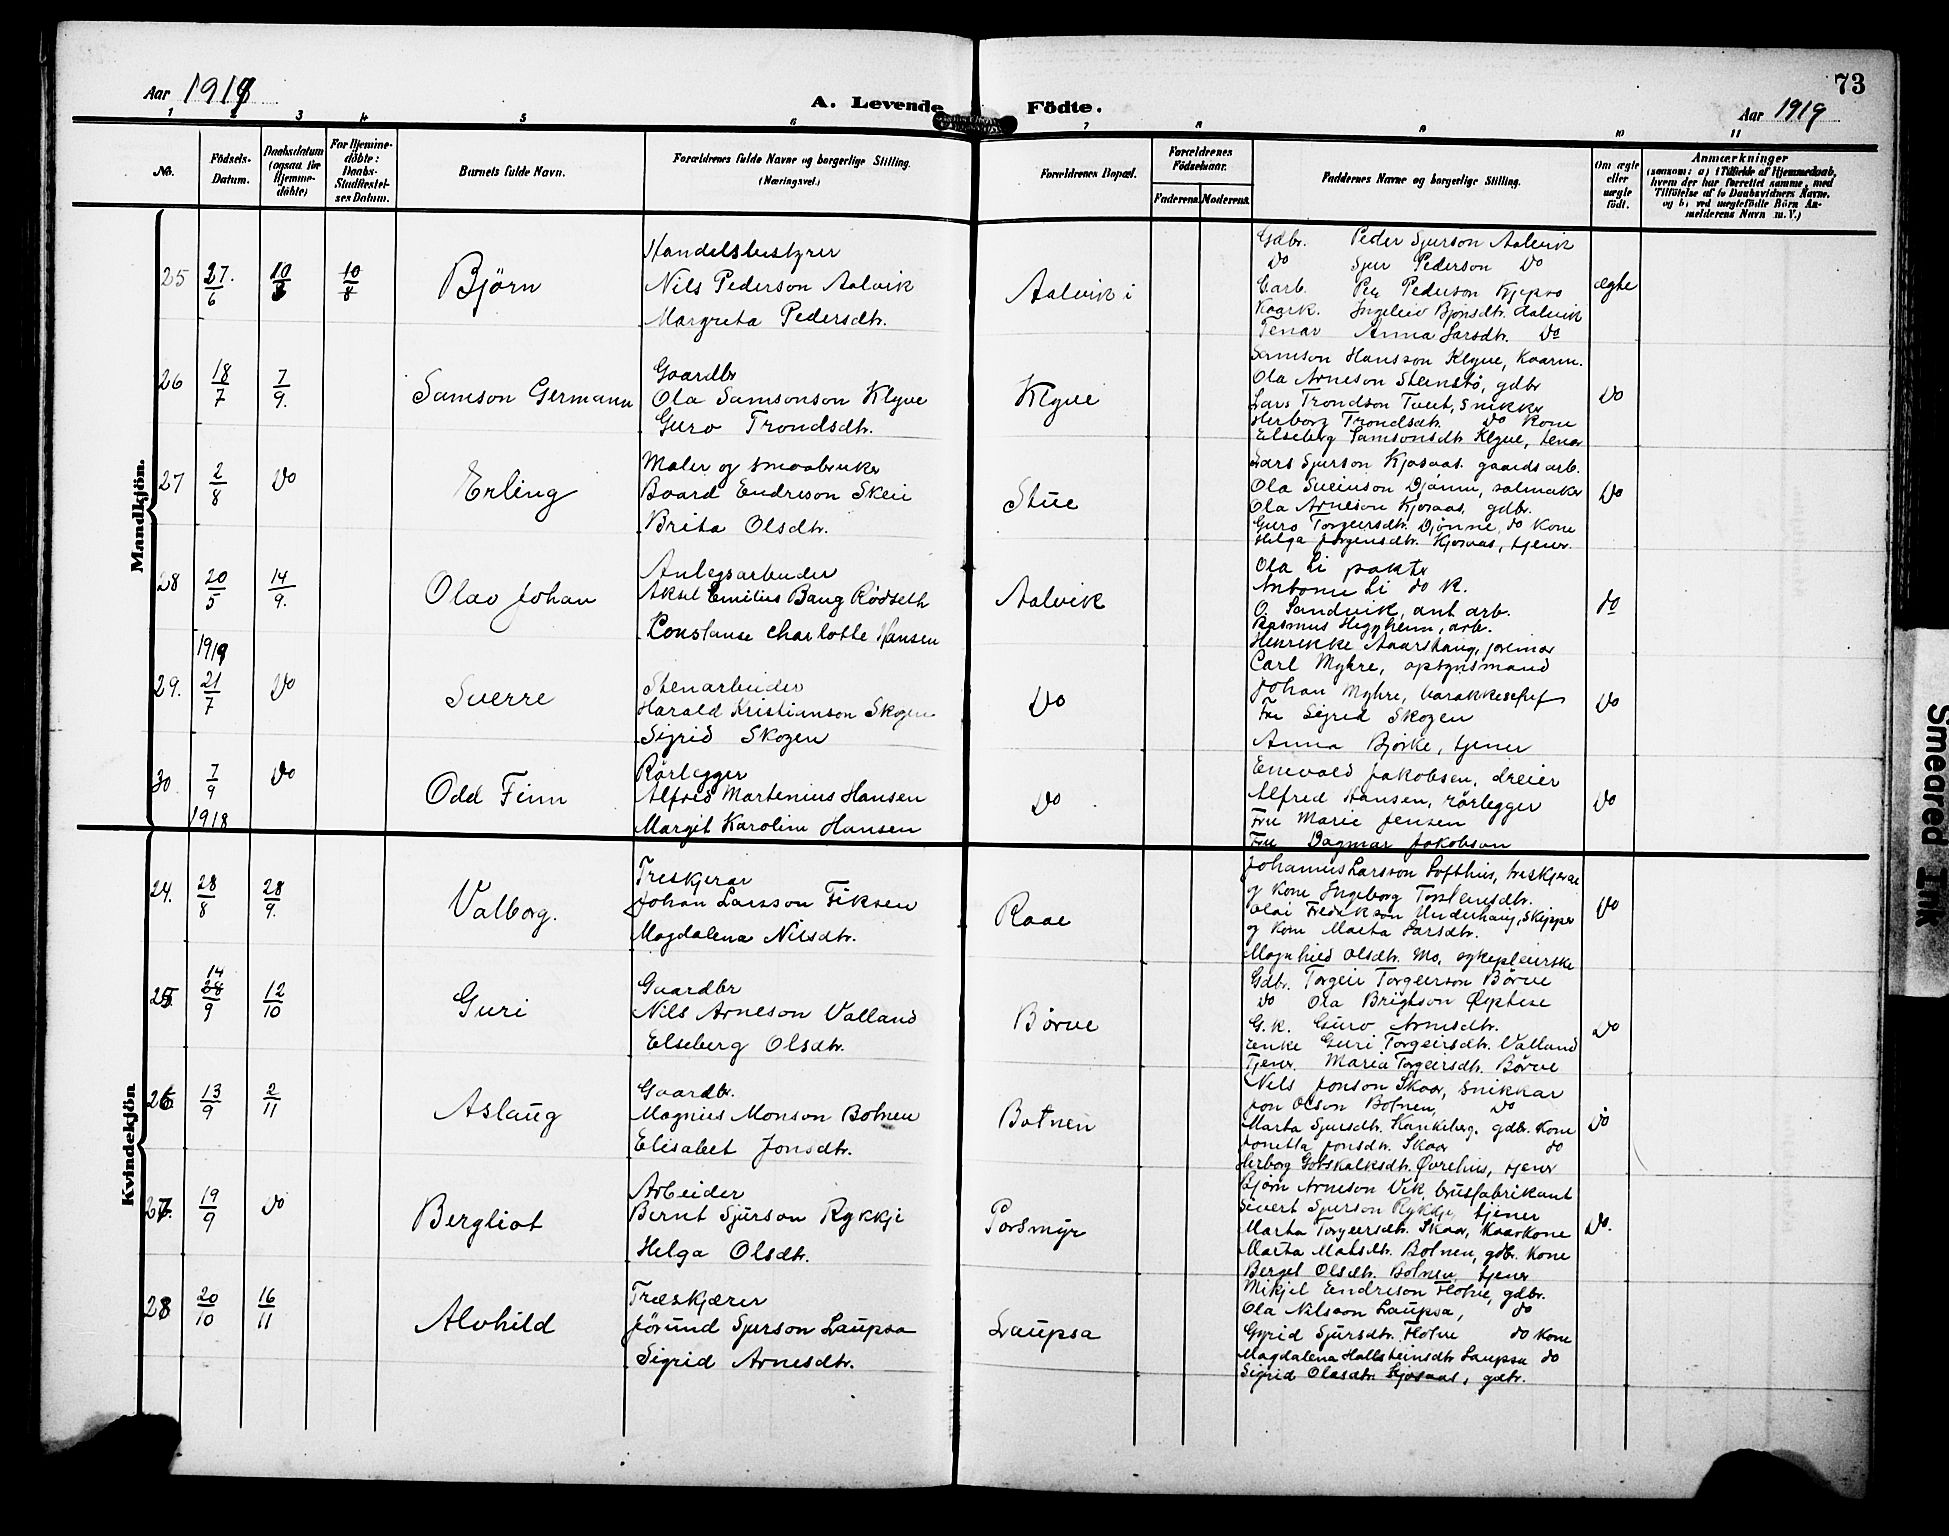 Aar 1919
A. Levende Födte.
73
Aar 1919
1 2 3 4 5 6 7 8 9 10 11
No.
Födsels-Datum.
Daabsdatum (ogsaa for Hjemme-döbte)
For Hjemme-döbte: Daabs-Stadfæstel-ses Datum.
Barnets fulde Navn.
Forældrenes fulde Navne og borgerlige Stilling.
(Næringsvei.)
Forældrenes Bopæl.
Forældrenes Födselsaar.
Faderens. Moderens.
Faddernes Navne og borgerlige Stilling.
Om ægte eller uægte födt.
Anmærkninger
(saasom: a) i Tilfælde af Hjemmedaab, hvem der har forrettet samme, med Tilföielse af to Daabsvidners Navne, og b) ved uægtefödte Börn An-melderens Navn m. V.)
Mandkjön.
25 27/6 10/8 10/8 Bjørn
Handelsbestyrer
Nils Pederson Aalvik
Margreta Pedersdtr.
Aalvik i
Gdbr. Peder Sjurson Aalvik
Do Sjur Pederson Do
Garb. Per Pederson Kjepso
Kaark. Ingeleiv Bjønsdtr. Aalvik
Tenar Anna Larsdtr. Do
ægte
26 18/7 7/9. Samson Germann
Gaardbr
Ola Samsonson Klyve
Guro Trondsdtr.
Klyve
Samson Hansson Klyve, Kaarm.
Ola Arneson Steinstø, gdbr
Lars Trondson Tveit, Snikker
Herborg Trondsdtr. Do Kone
Elseberg Samsonsdtr Klyve, tenar
Do
27 2/8 Do Erling
Maler og smaabruker
Baard Endreson Skeie
Brita Olsdtr.
Stue
Lars Sjurson Kjosaas. gaardsarb.
Ola Sveinson Djønne, salmaker
Ola Arneson Kjosaas, gdbr.
Guro Torgeirsdtr. Djønne, do Kone
Helga Jørgensdtr. Kjosaas, tjener.
Do
28 20/5 14/9. Olav Johan
Anlegsarbeider
Aksel Emilius Bang Rødseth
Constanse Charlotte Hansen
Aalvik
Ola Li pakter
Antonie Li do K.
O. Sandvik, anl arb.
Rasmus Heggheim, arb.
Henrikke Aarshaug,
do
1919
29. 21/7 Do Sverre
Stenarbeider
Harald Kristianson Skogen
Sigrid Skogen
Do
Carl Myhre, opsynsmand
Johan Myhre, barakkeschef
Fru Sigrid Skogen
Anna Bjørke, tjener
Do
30. 7/9 Do Odd Finn
Rørlegger
Alfred Martenius Hansen
Margit Karoline Hansen
Do
Enevald Jakobsen, dreier
Alfred Hansen, rörlegger
Fru Marie Jensen
Fru Dagmar Jakobson
Do
1918
Kvindekjön
24. 28/8 28/9. Valborg.
Treskjerar
Johan Larsson Fiksen
Magdalena Nilsdtr.
Raae
Johannes Larsson Lofthus, treskjerar
og Kone Ingeborg Torsteinsdtr.
Olai Fredrikson Underhaug, Skipper
og Kone Marta Larsdtr.
Magnhild Olsdtr. Mo, sykepleierske
Do
25. 14/9 12/10 Guri
Gaardbr
Nils Arneson Valland
Elseberg Olsdtr.
Børve
Gdbr. Torgeir Torgeirson Børve
Do Ola Brigtson Øsptese
G.K. Guro Arnesdtr.
Enke Guri Torgeirsdtr. Valland
Tjener. Maria Torgeirsdtr. Børve
Do
26 13/9 2/11 Aslaug
Gaardbr.
Magnus Monson Botnen
Elisabet Jonsdtr.
Botnen
Nils Jonson Skaar, Snikkar
Jon Olson Botnen, Do
Marta Sjursdtr. Kankeberg. gdbr. Kone
Jonetta Jonsdtr. Skaar do
Herborg Gotskalksdtr. Øvrehus, tjener
Do
27. 19/9 Do Bergliot
Arbeider
Bernt Sjurson Rykkje
Helga Olsdtr.
Porsmyr
Bjørn Arneson Vik brusfabrikant
Sivert Sjurson Rykkje, tjener
Marta Torgeirsdtr. Skaar, Kaarkone
Marta Matsdtr. Botnen, gdb. Kone
Berget Olsdtr. Botnen, tjener
Do.
28 20/10 16/11 Alvhild
Træskjærer
Jörund Sjurson Laupsa
Sigrid Arnesdtr.
Laupsa
Mikjel Endreson Flotve, gdbr.
Ola Nilsson Laupsa, do
Gyrid Sjursdtr. Flotve do Kone
Magdalena Hallsteinsdtr Laupsa do
Sigrid Olasdtr Kjosaas, gdbr.
Smeared Ink